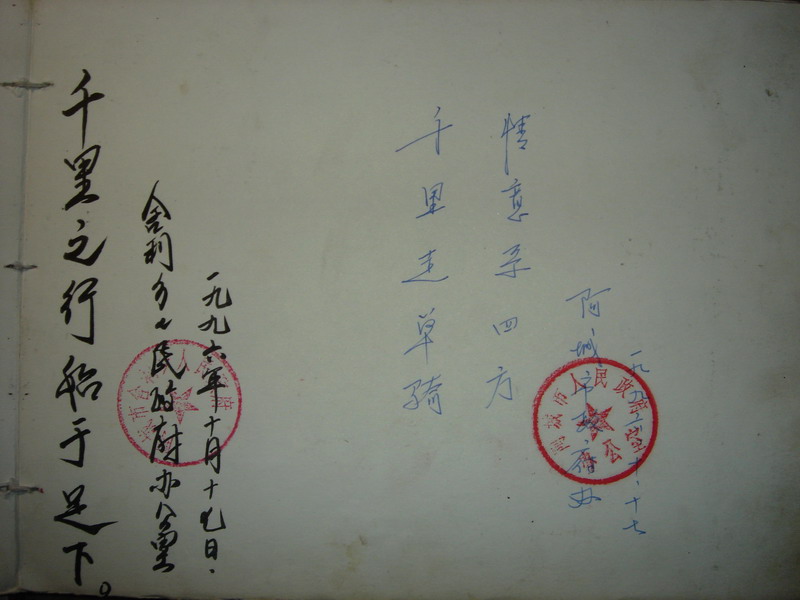 千里之行始于足下。
舍利乡人民政府办公室
一九九六年十月十 日.
千里走单骑
情意 四方
阿城市政府办
一九九六.十.十七
阿城市人民政府办公室